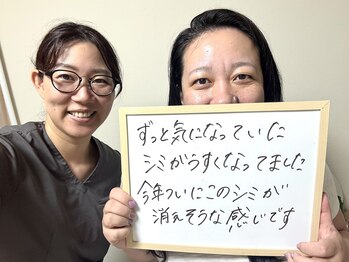 ずっと気になっていた
シミがうすくなってました
今年ついにこのシミが
消えそうな感じです